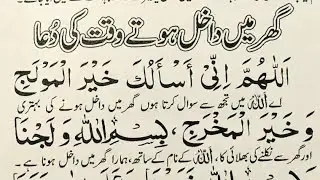 گھر میں داخل ہوتے وقت کی دُعا
اَللّٰهُمَّ اِنِّیْ اَسْأَلُكَ خَيْرَ الْمَوْلَجِ
اے اللہ! میں تجھ سے سوال کرتا ہوں گھر میں داخل ہونے کی بہتری
وَ خَيْرَ الْمَخْرَجِ، بِسْمِ اللهِ وَلَجْنَا
اور گھر سے نکلنے کی بھلائی کا، اللہ کے نام کے ساتھ، ہمارا گھر میں داخل ہونا ہے۔